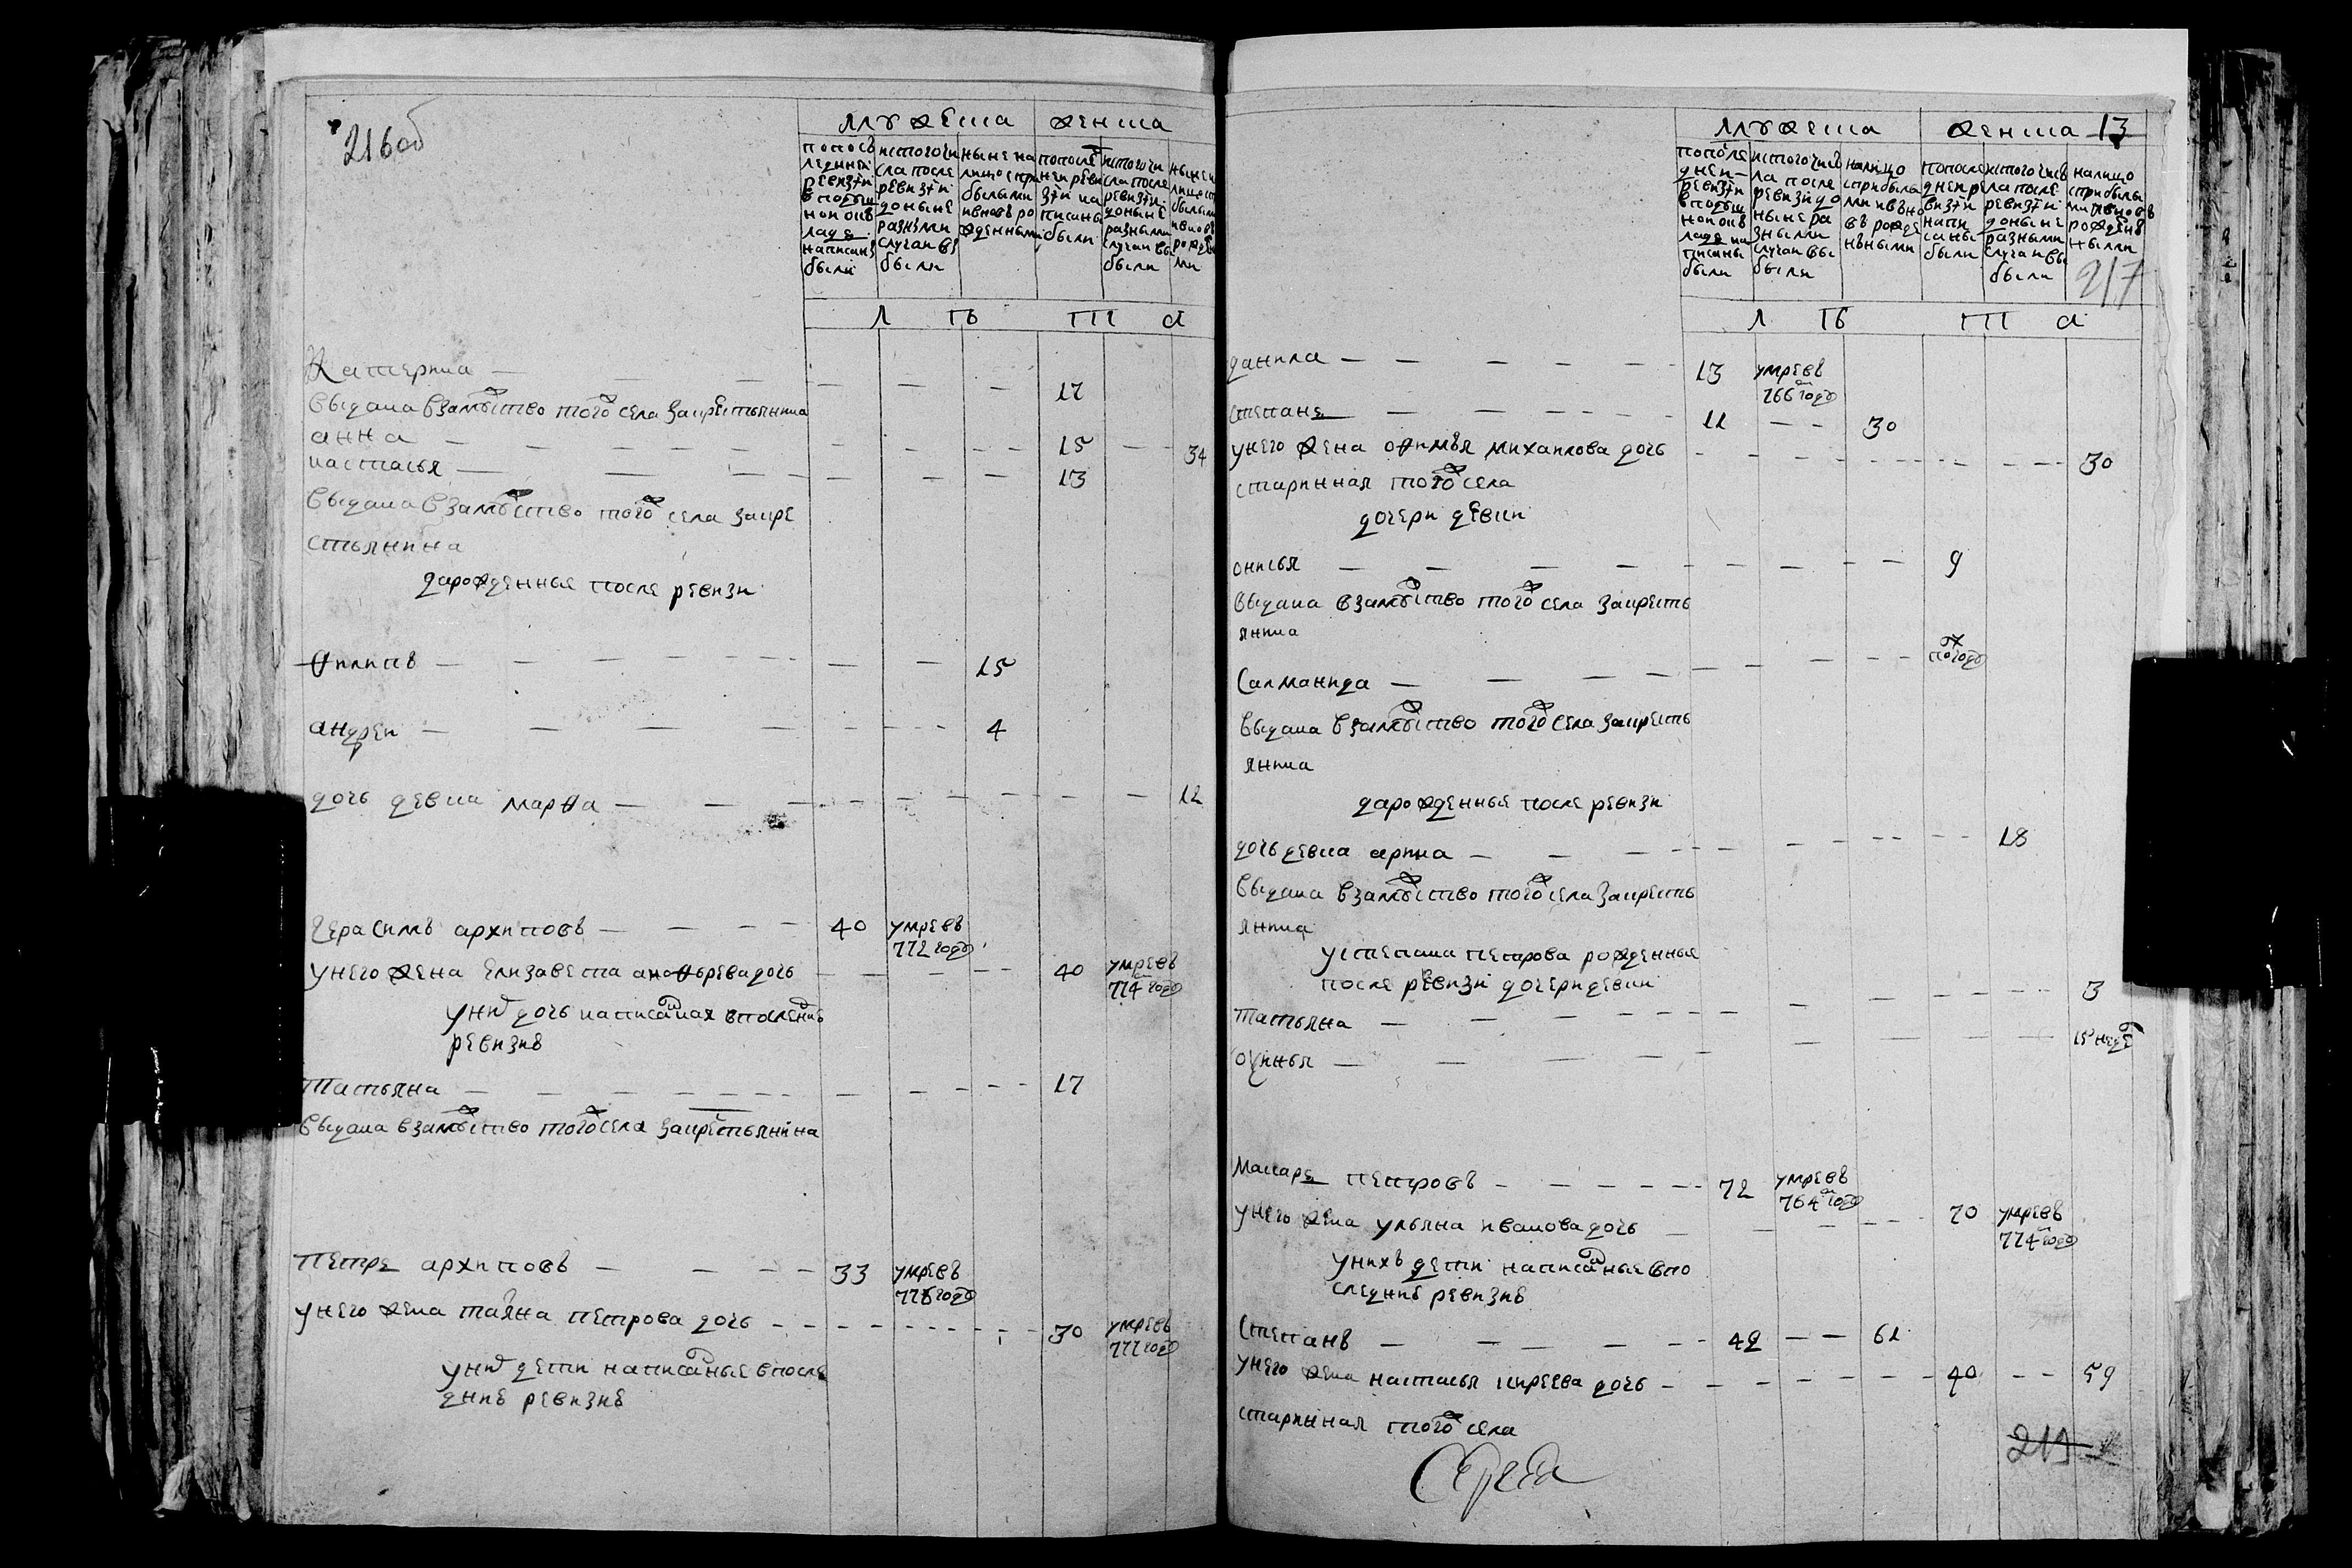 216об
мужеска женска
попосл
еднеи
ревизіи
в подуш
ном окл
аде
написан
были
ис того чи
сла после
ревизіи
до ныне
разными
случаи вы
были
ныне на
лицо с при
былыми
и вновь ро
жденными
попосле
неи реви
зіи на
писаны
были
ис того чи
сла после
ревизіи
до ныне
разными
случаи вы
были
л ѣ т а
катерина — — — — — — 17
выдана взамужство того села за крестьянина
анна — — — — — — 15 — — 34
настасья — — — — — — 13
выдана взамужство того села за кре
стьянина
да рожденные после ревизи
Филипъ — — — — — — 15
андреи — — — — — — 4
дочь девка марѳа — — — — — — 12
герасимъ архиповъ — — — — 40 умре въ
772 годъ
у него жена елизавета анофрева дочь — — — — 40 умре въ
774 годъ
у них дочь написаная в последнѣ
ревизиѣ
татьяна — — — — — — 17
выдана взамужство того села за крестьянина
петръ архиповъ — — — — 33 умре въ
годъ
у него жена татьяна петрова дочь — — — — 30 умре въ
777 годъ
у них дети написаные в после
днеѣ ревизиѣ
мужеска женска 13
попосле
днеи
ревизіи
в подуш
ном окл
аде на
писаны
были
ис того чис
ла после
ревизи до
ныне ра
зными
случаи вы
были
на лицо
с прибылы
ми и вно
вь рожде
нными
попосле
дней ре
визіи
напи
саны
были
ис того чис
ла после
ревизіи
до ныне
разными
случаи вы
были
на лицо
с прибылы
ми и вновь
рожден
ными
217
л ѣ т а
данила — — — — — 13 умре въ
766 годъ
степанъ — — — — — 11 — — 30
у него жена офимья михаилова дочь — — — — — — 30
старинная того села
дочери девки
онисья — — — — — — 9
выдана взамужство того села за кресть
янина
полгоду
Салманида — — — — — —
выдана взамужство того села за кресть
янина
да рожденные после ревизи
дочь девка арина — — — — — — 18
выдана взамужство того села за кресть
янина
у степана петрова рожденные
после ревизи дочери девки
татьяна — — — — — — 3
— — — — — — 15 недѣ
макаръ петровъ — — — — — 72 умре въ
764 годъ
у него жена ульяна иванова дочь — — — — 70 умре въ
774 годъ
у нихъ дети написаные в по
следниѣ ревизиѣ
Степанъ — — — — — 42 — — 61
у него жена настасья киреева дочь — — — — — 40 — — 59
старинная того села
Середа